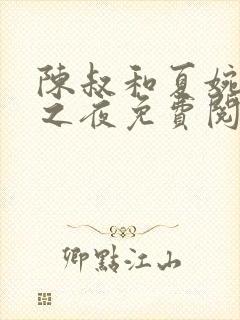 陳叔和夏婉
之夜免費閱
卿點江山